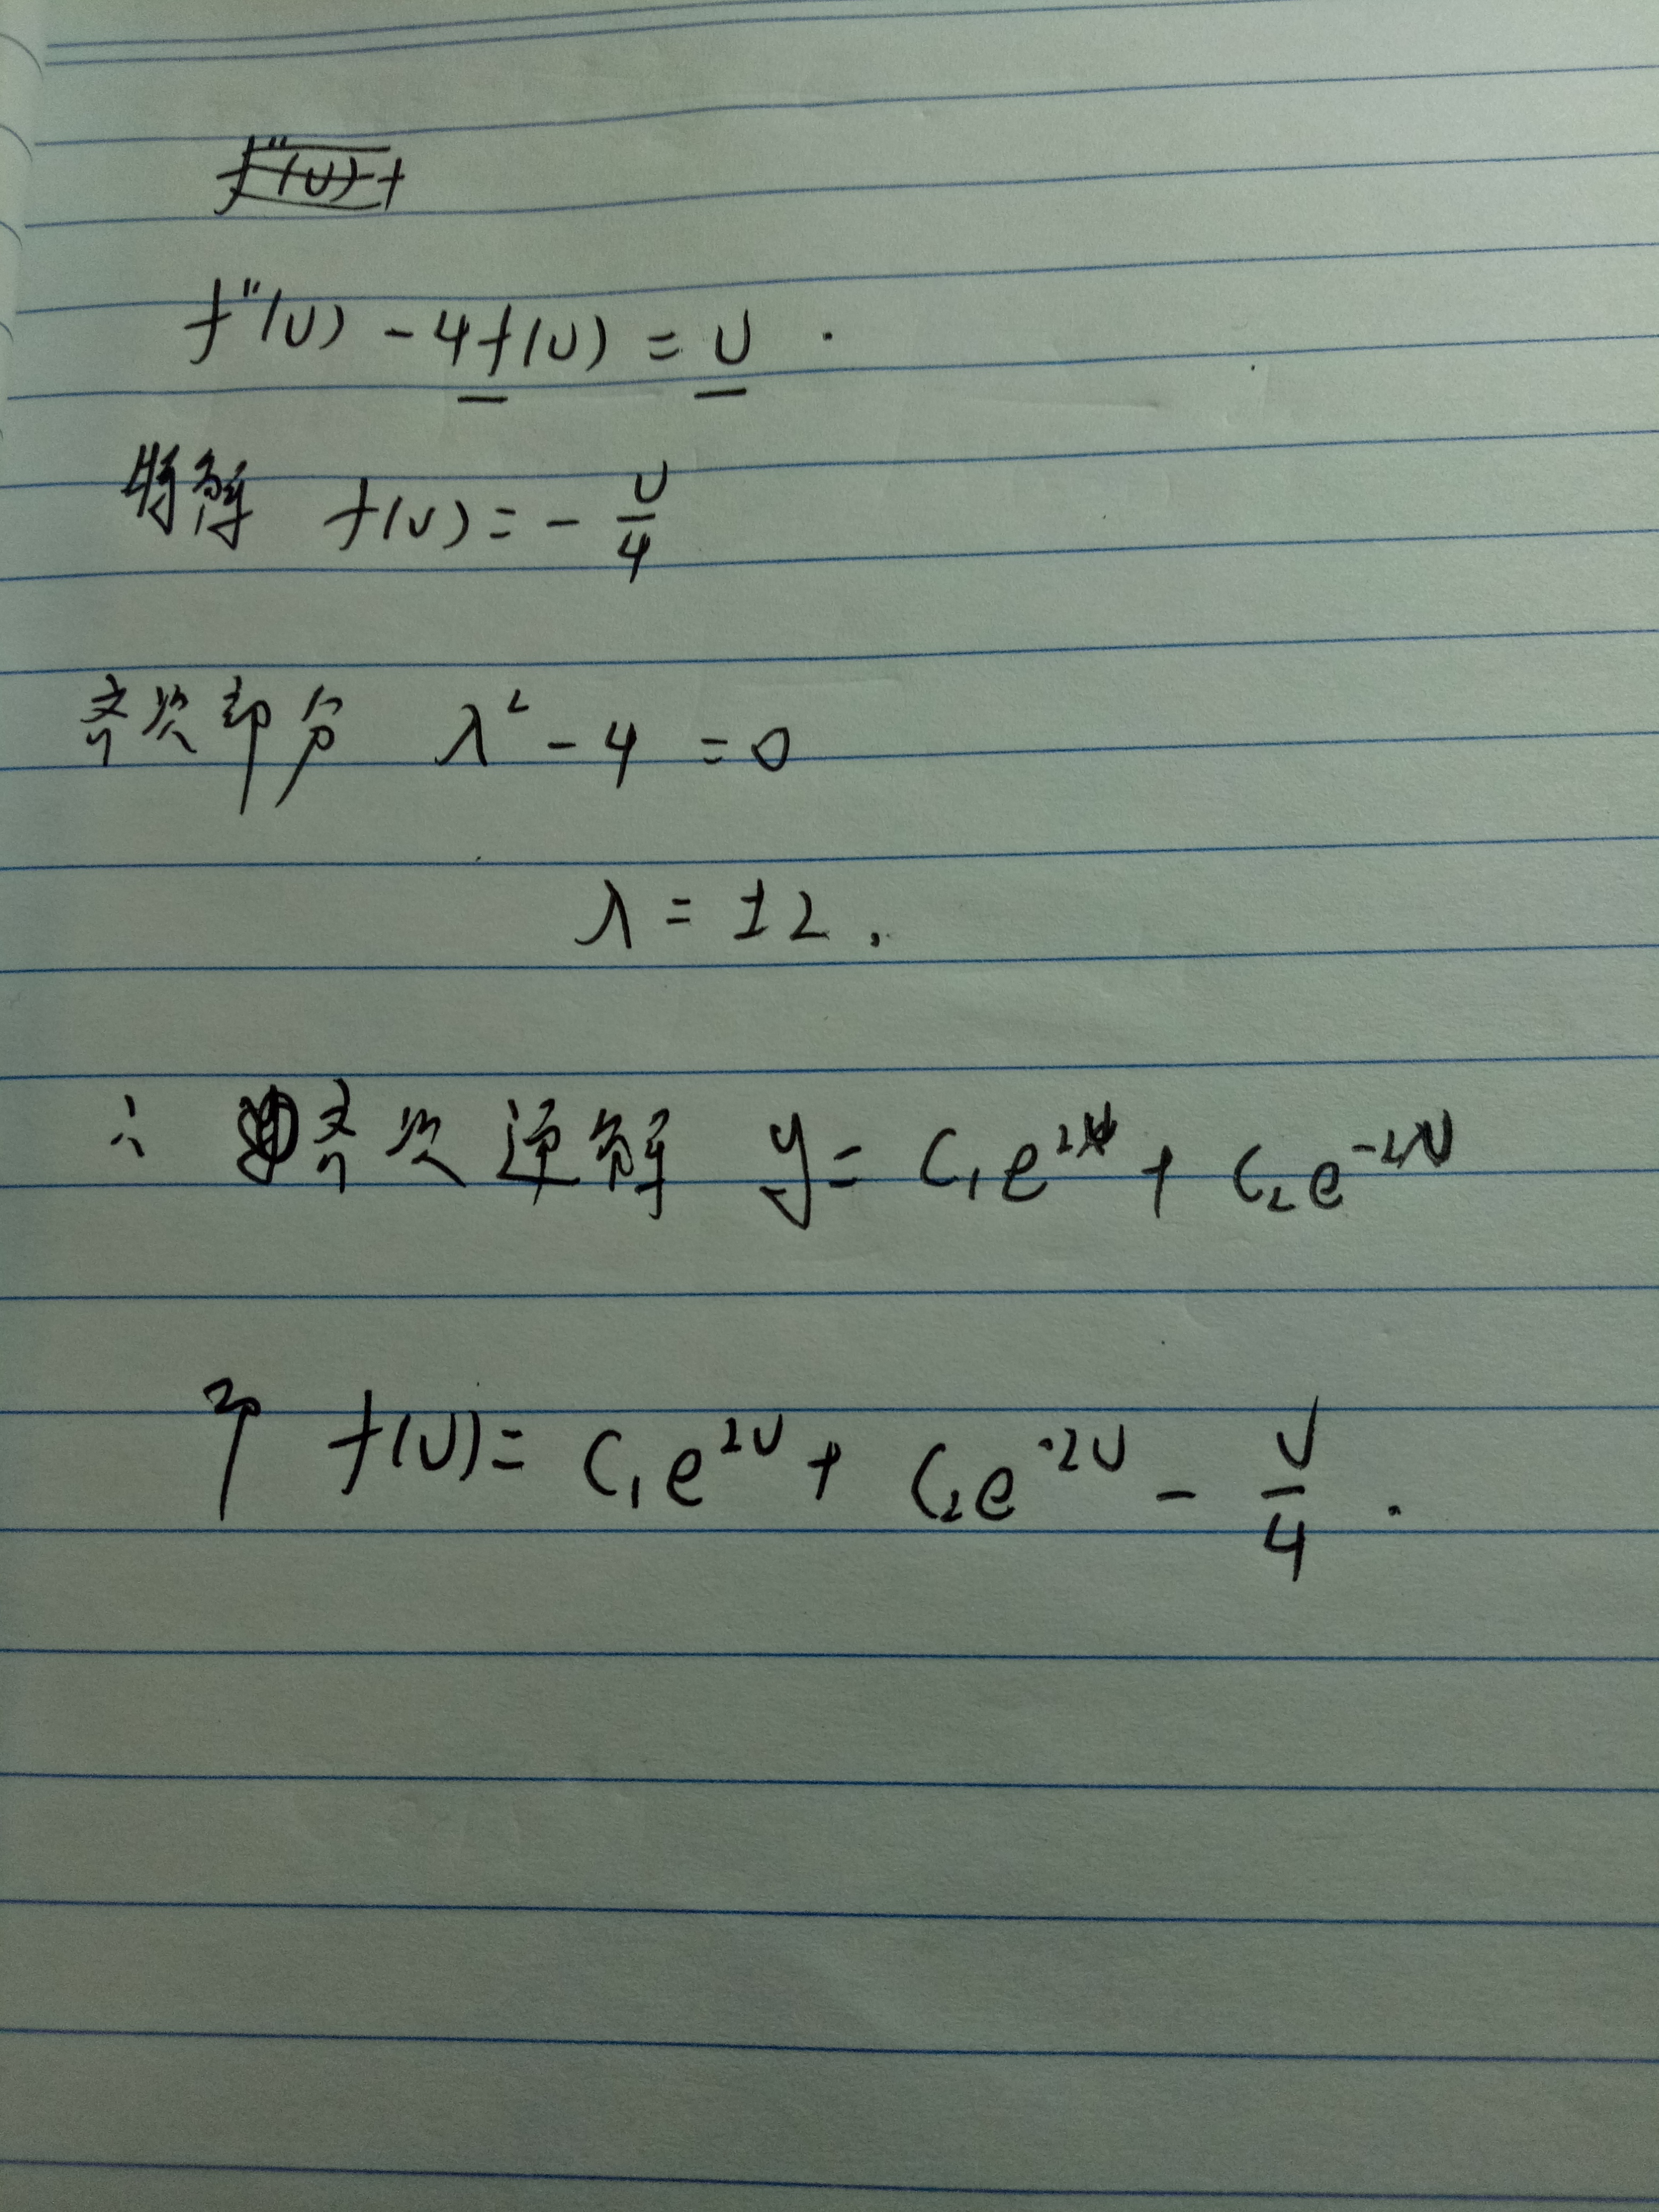 f''(U) - 4f(U) = U .
特解 f(U) = - U/4
齐次部分 λ² - 4 = 0
λ = ±2 .
∴ 齐次通解 y = C₁e^{2U} + C₂e^{-2U}
即 f(U) = C₁e^{2U} + C₂e^{-2U} - U/4 .